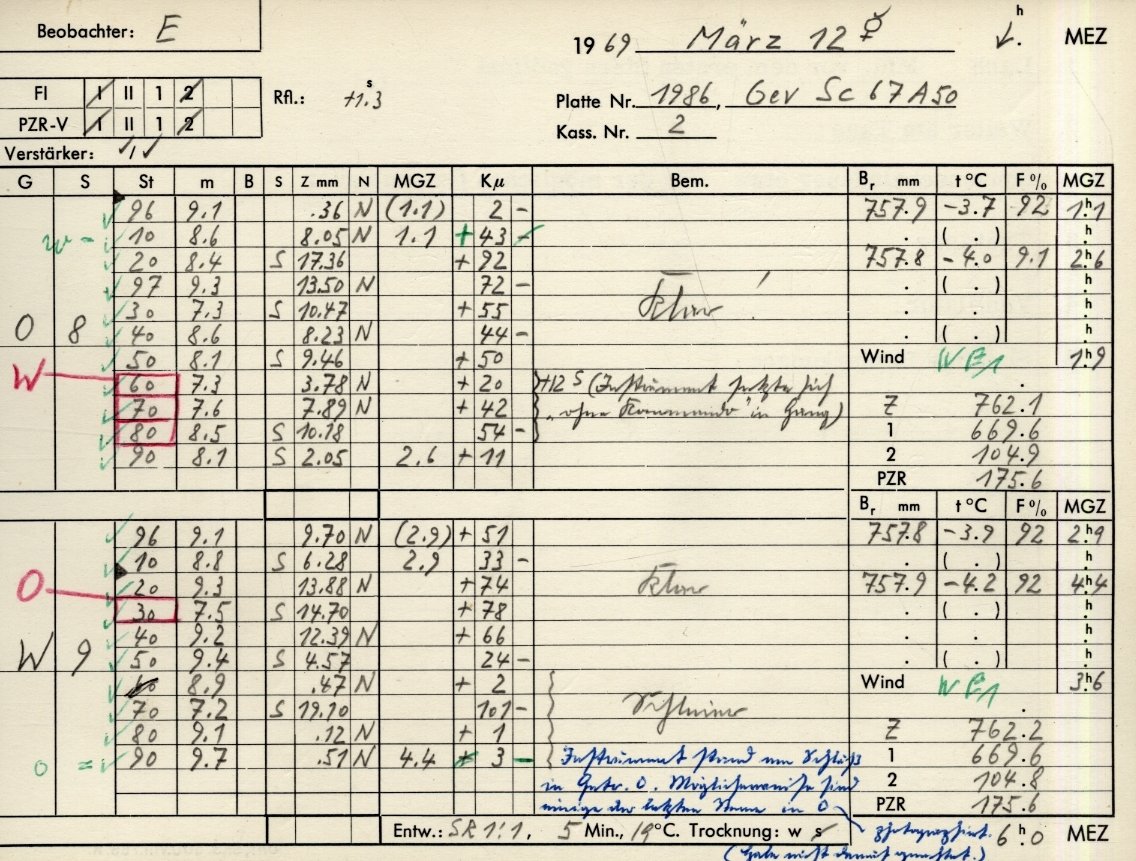 Beobachter: E
19 69 März 12 ☿ h . MEZ
FI I II 1 2
Rfl.: +1.3 s
Platte Nr. 1986, Gev Sc 67 A 50
PZR-V I II 1 2
Kass. Nr. 2
Verstärker: ✓/✓
G S St m B S Z mm N MGZ Kμ Bem. Br mm t °C F% MGZ
96 9.1 .36 N (1.1) 2 - 757.9 -3.7 92 1h.1
w - 10 8.6 8.05 N 1.1 + 43 . ( . ) h.
20 8.4 S 17.36 + 92 757.8 -4.0 9.1 2h.6
97 9.3 13.50 N 72 - . ( . ) h.
30 7.3 S 10.47 + 55 Klar! . . h.
O 8 40 8.6 8.23 N 44 - . ( . ) h.
50 8.1 S 9.46 + 50 Wind W 1h.9
W 60 7.3 3.78 N + 20 +12 s (Instrument setzte sich .
70 7.6 7.89 N + 42 "ohne Kommando" in Gang) Z 762.1
80 8.5 S 10.18 54 - 1 669.6
90 8.1 S 2.05 2.6 + 11 2 104.9
PZR 175.6
Br mm t °C F% MGZ
96 9.1 9.70 N (2.9) + 51 757.8 -3.9 92 2h.9
10 8.8 S 6.28 2.9 33 - . ( . ) h.
O 20 9.3 13.88 N + 74 Klar 757.9 -4.2 92 4h.4
30 7.5 S 14.70 + 78 . ( . ) h.
40 9.2 12.39 N + 66 . . h.
W 9 50 9.4 S 4.57 24 - . ( . ) h.
60 8.9 .47 N + 2 Wind W 3h.6
70 7.2 S 19.10 101 - Schleier .
80 9.1 .12 N + 1 Z 762.2
o = 90 9.7 .51 N 4.4 3 - Instrument stand am Schluß 1 669.6
in O. Möglicherweise sind 2 104.8
einige der letzten Sterne in O PZR 175.6
Entw.: SR 1:1, 5 Min., 19°C. Trocknung: w s photographiert. 6 h.0 MEZ
(Habe nicht darauf geachtet.)